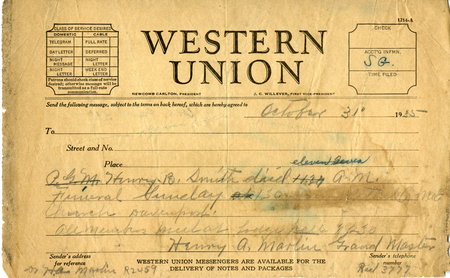 1216-A
CLASS OF SERVICE DESIRED
DOMESTIC CABLE
TELEGRAM FULL RATE
DAY LETTER DEFERRED
NIGHT MESSAGE NIGHT LETTER
NIGHT LETTER WEEK END LETTER
Patrons should check class of service desired; otherwise message will be transmitted as a full-rate communication.
WESTERN
UNION
NEWCOMB CARLTON, PRESIDENT J. C. WILLEVER, FIRST VICE-PRESIDENT
CHECK
ACCT'G INFMN.
TIME FILED
Send the following message, subject to the terms on back hereof, which are hereby agreed to
October 31 1935
To
Street and No.
Place
eleven seven
P.G.M. Henry B. Smith died A.M.
Funeral Sunday
Church Davenport
Henry A. Martin Grand Master
Sender's address
for reference
WESTERN UNION MESSENGERS ARE AVAILABLE FOR THE
DELIVERY OF NOTES AND PACKAGES
Sender's telephone
number
Martin 82459
3777